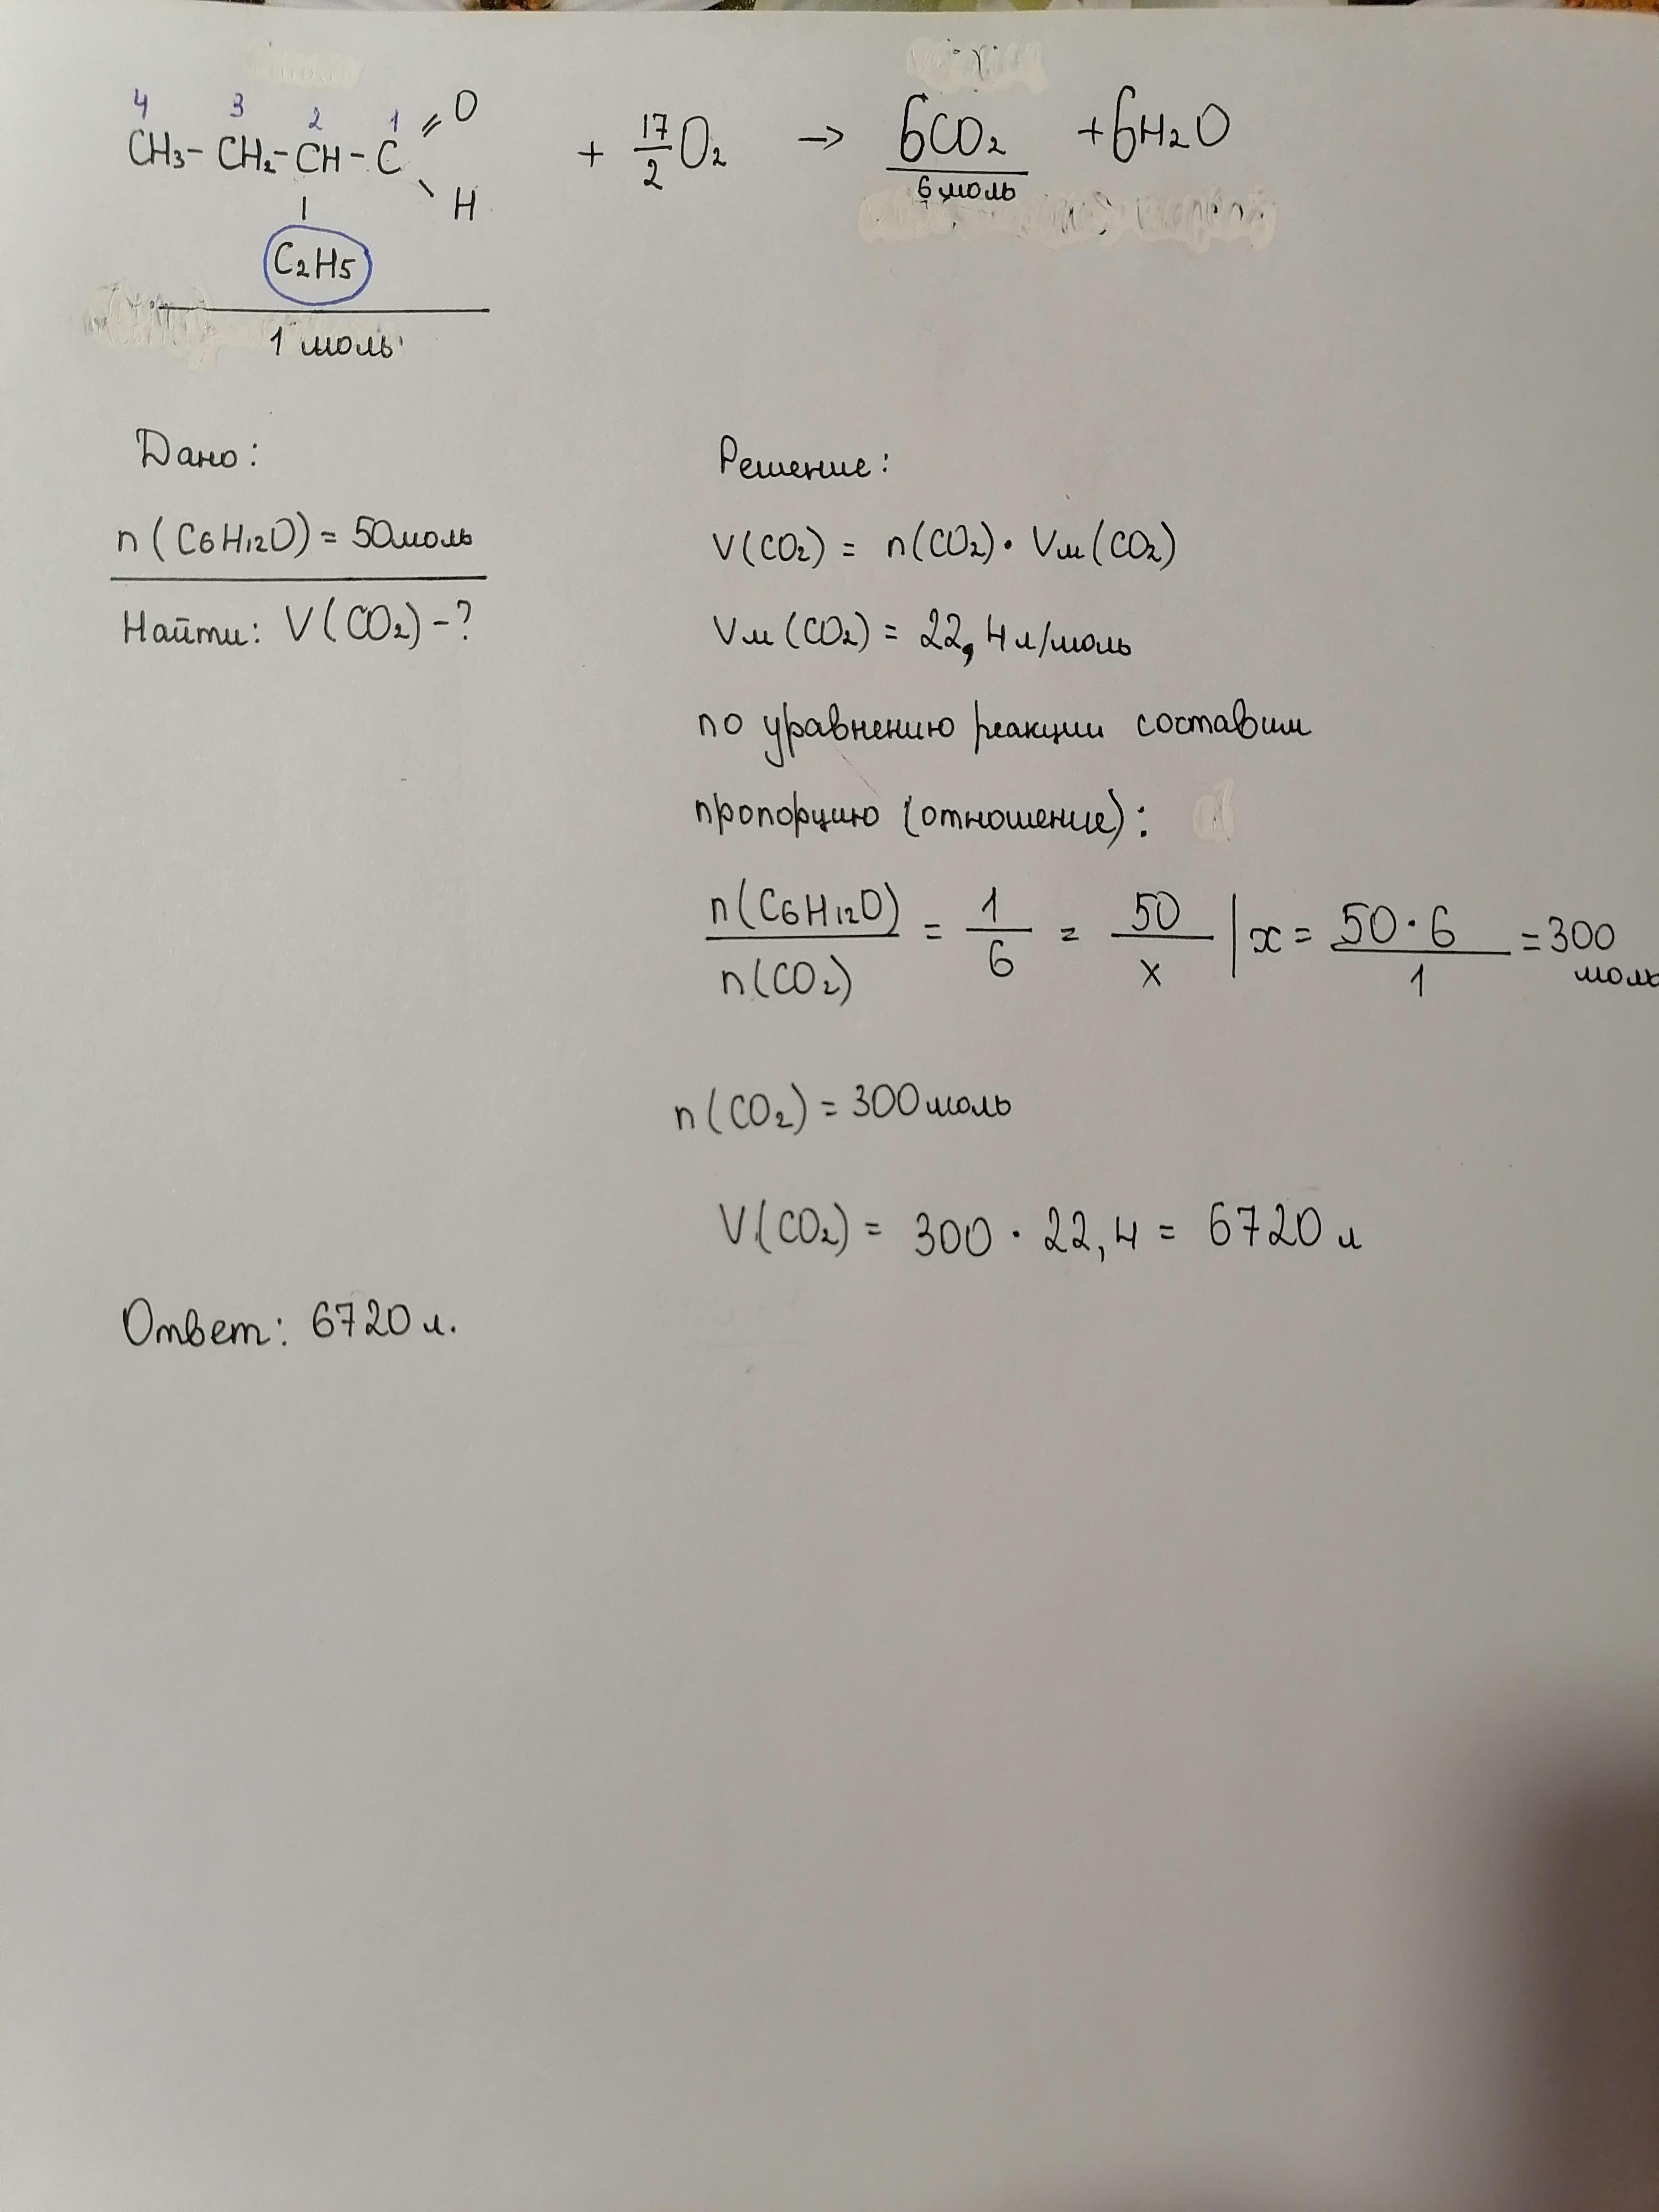 4 3 2 1
CH₃- CH₂- CH - C =O \ H + 17/2 O₂ → 6CO₂ + 6H₂O
6 моль
|
C₂H₅
1 моль
Дано:
n(C₆H₁₂O) = 50 моль
Найти: V(CO₂) - ?
Решение:
V(CO₂) = n(CO₂) · Vм(CO₂)
Vм(CO₂) = 22,4 л/моль
по уравнению реакции составим
пропорцию (отношение):
n(C₆H₁₂O)/n(CO₂) = 1/6 = 50/x | x = 50·6/1 = 300 моль
n(CO₂) = 300 моль
V(CO₂) = 300 · 22,4 = 6720 л
Ответ: 6720 л.